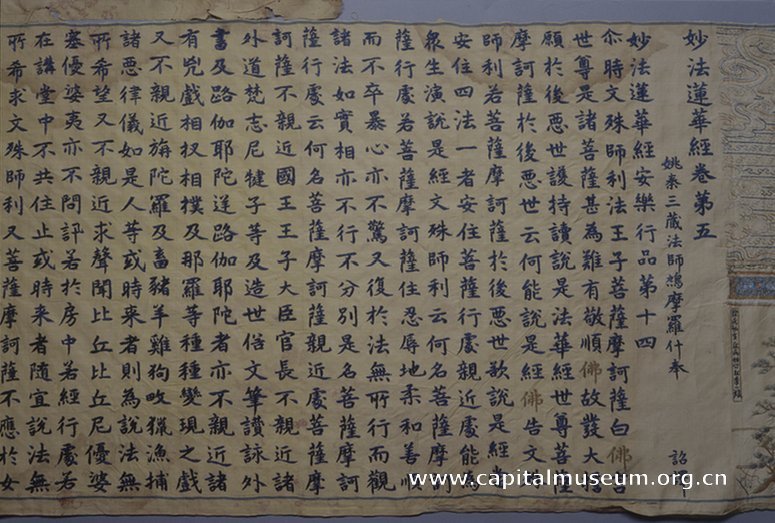 妙法蓮華經卷第五
姚秦三藏法師鳩摩羅什奉 詔譯
妙法蓮華經安樂行品第十四
尒時文殊師利法王子菩薩摩訶薩白佛言
世尊是諸菩薩甚為難有敬順佛故發大誓
願於後惡世護持讀說是法華經世尊菩薩
摩訶薩於後惡世云何能說是經佛告文殊
師利若菩薩摩訶薩於後惡世欲說是經當
安住四法一者安住菩薩行處親近處能為
眾生演說是經文殊師利云何名菩薩摩訶
薩行處若菩薩摩訶薩住忍辱地柔和善順
而不卒暴心亦不驚又復於法無所行而觀
諸法如實相亦不行不分別是名菩薩摩訶
薩行處云何名菩薩摩訶薩親近處菩薩摩
訶薩不親近國王王子大臣官長不親近諸
外道梵志尼犍子等及造世俗文筆讚詠外
書及路伽耶陀逆路伽耶陀者亦不親近諸
有兇戲相扠相撲及那羅等種種變現之戲
又不親近旃陀羅及畜豬羊雞狗畋獵漁捕
諸惡律儀如是人等或時來者則為說法無
所希望又不親近求聲聞比丘比丘尼優婆
塞優婆夷亦不問訊若於房中若經行處若
在講堂中不共住止或時來者隨宜說法無
所希求文殊師利又菩薩摩訶薩不應於女
www.capitalmuseum.org.cn